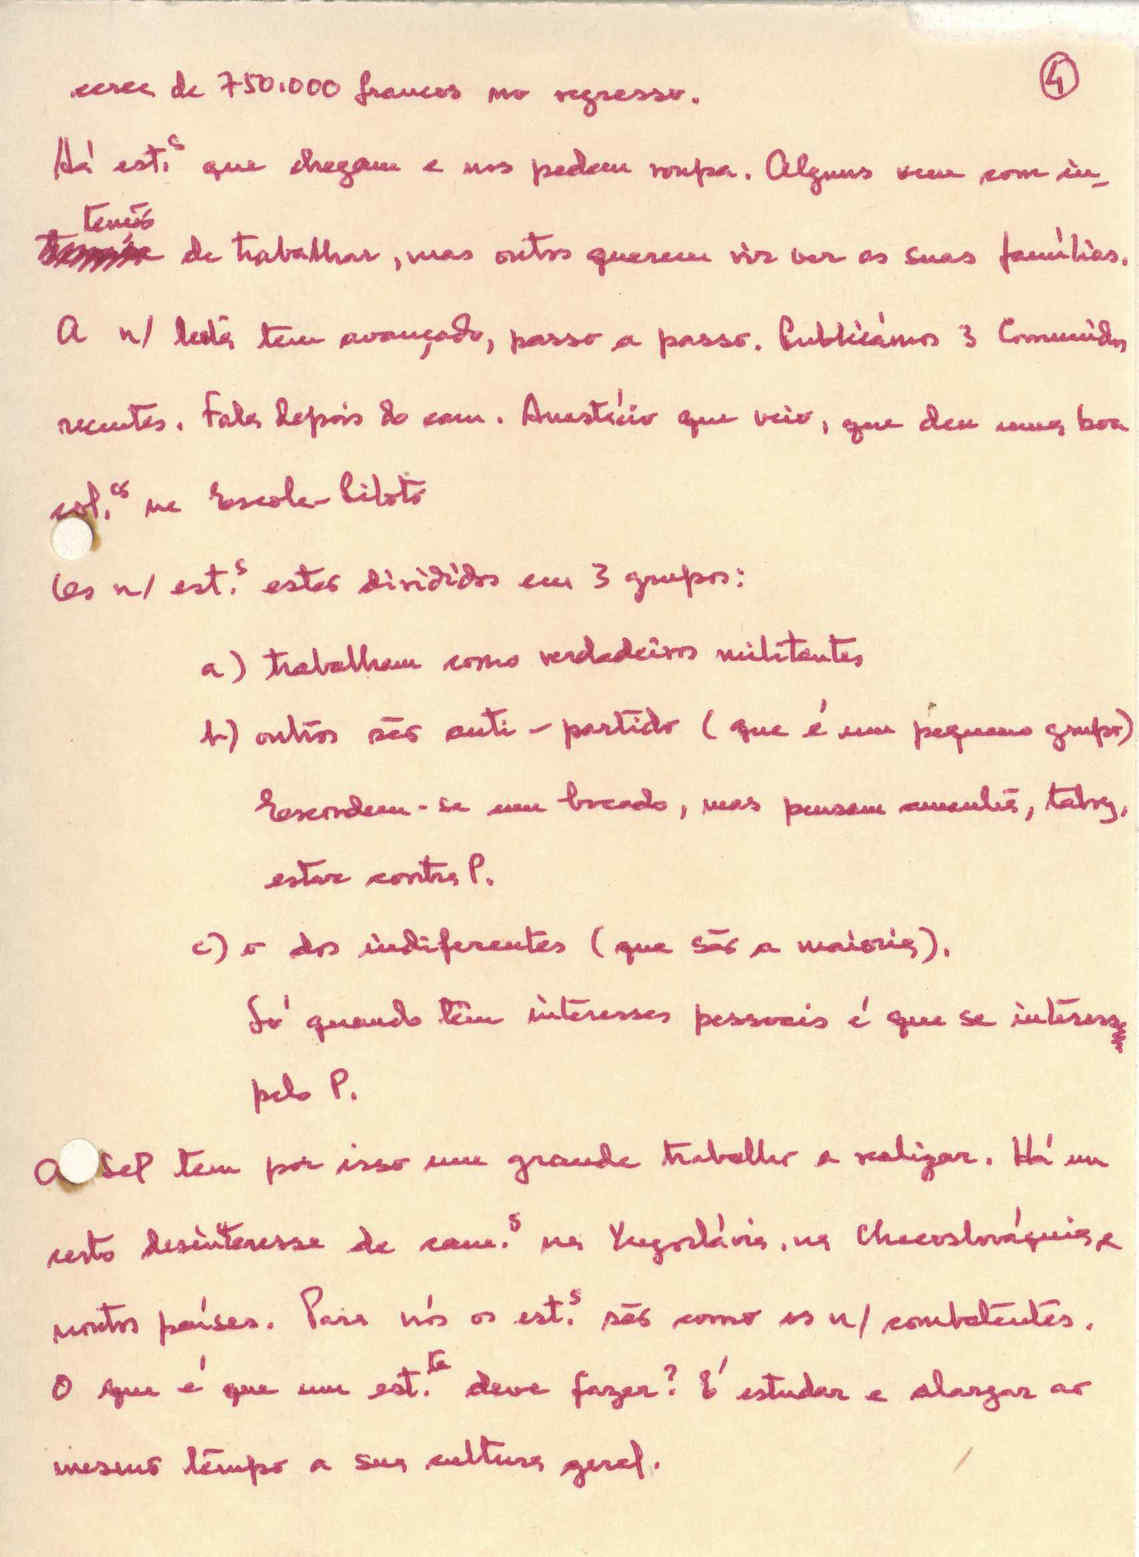 4
cerca de 750.000 francos no regresso.
Há est.s que chegam e nos pedem roupa. Alguns vem com in-
tenção de trabalhar, mas outros querem vir ver as suas famílias.
A n/ luta tem avançado, passo a passo. Publicámos 3 Comunicados
recentes. Fala depois do cam. Anastácio que veio, que deu uma boa
col.ão na Escola-Piloto
Os n/ est.s estão divididos em 3 grupos:
a) trabalham como verdadeiros militantes
b) outros são anti-partido (que é um pequeno grupo)
Escondem-se um bocado, mas pensam amanhã, talvez,
estar contra P.
c) o dos indiferentes (que são a maioria).
Só quando têm interesses pessoais é que se interess
pelo P.
O Sel tem por isso um grande trabalho a realizar. Há um
certo desinteresse de cam.s na Yugoslávia, na Checoslováquia, e
noutros países. Para nós os est.s são como os n/ combatentes.
O que é que um est.te deve fazer? É estudar e alargar ao
mesmo tempo a sua cultura geral.